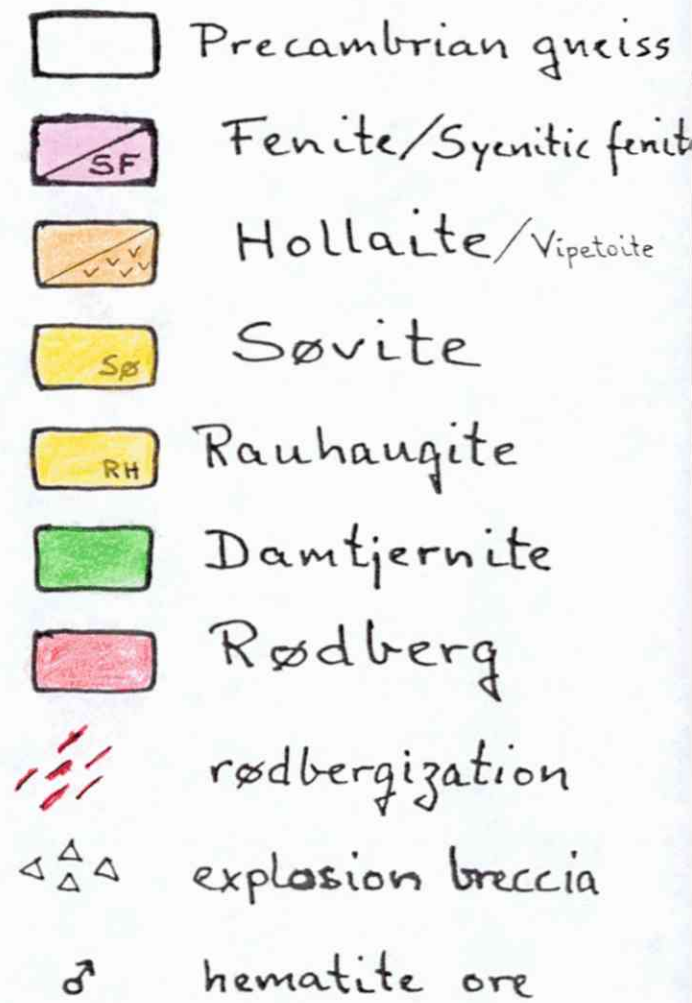 Precambrian gneiss
SF Fenite/Syenitic fenit
Hollaite/Vipetoite
Sø Søvite
RH Rauhaugite
Damtjernite
Rødberg
rødbergization
explosion breccia
♂ hematite ore